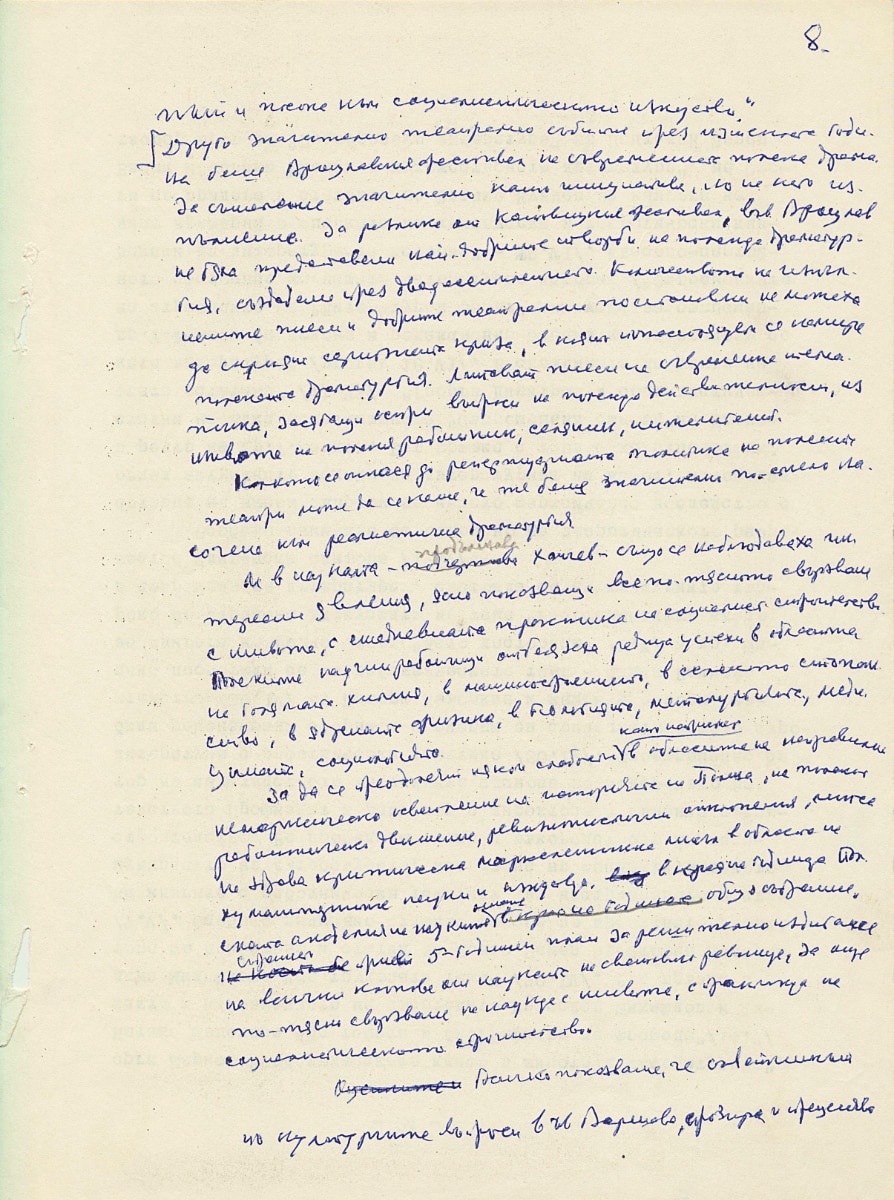 8.
пъти и насоки към социалистическото изкуство."
Друго значително театрално събитие през изтеклата годи-
на беше Вроцлавския фестивал на съвременната полска драма.
За съжаление значително като инициатива, но не като из-
пълнение. За разлика от Катовицкия фестивал, във Вроцлав
не бяха представени най-добрите творби на полската драматур-
гия, създадени през двадесетилетието. Количеството на изпъл-
нените пиеси и добрите театрални постановки не можаха
да скрият сериозната криза, в която понастоящем се намира
полската драматургия. Липсват пиеси на съвременна тема-
тика, засягащи остри въпроси на полската действителност, из
живота на полския работник, селянин, интелигент.
Колкото се отнася до репертуарната политика на полските
театри може да се каже, че тя беше значително по-смело на-
сочена към реалистична драматургия.
И в науката - продължава Ханчев - също се наблюдаваха ин-
тересни явления, ясно показващи все по-тясното свързване
с живота, с ежедневната практика на социалист. строителство.
Полските научни работници отбелязаха редица успехи в областта
на голямата химия, в машиностроенето, в селското стопан-
ство, в ядрената физика, в биологията, металургията, меди-
цината, социологията.
За да се преодолеят някои слабости като например в областта на неправилно
немарксическо осветление на историята на Полша, на полското
работническо движение, ревизионистични отклонения, липса
на здрава критическа марксистка мисъл в областта на
хуманитарните науки и т.н., в края на годината Пол-
ската академия на науките на своето общо събрание,
прие 5-годишен план за решително издигане
на всички клонове от науката на световно равнище, за още
по-тясно свързване на науката с живота, с практиката на
социалистическото строителство.
Всичко показваше, че съветникът
по културните въпроси във Варшава, проф.